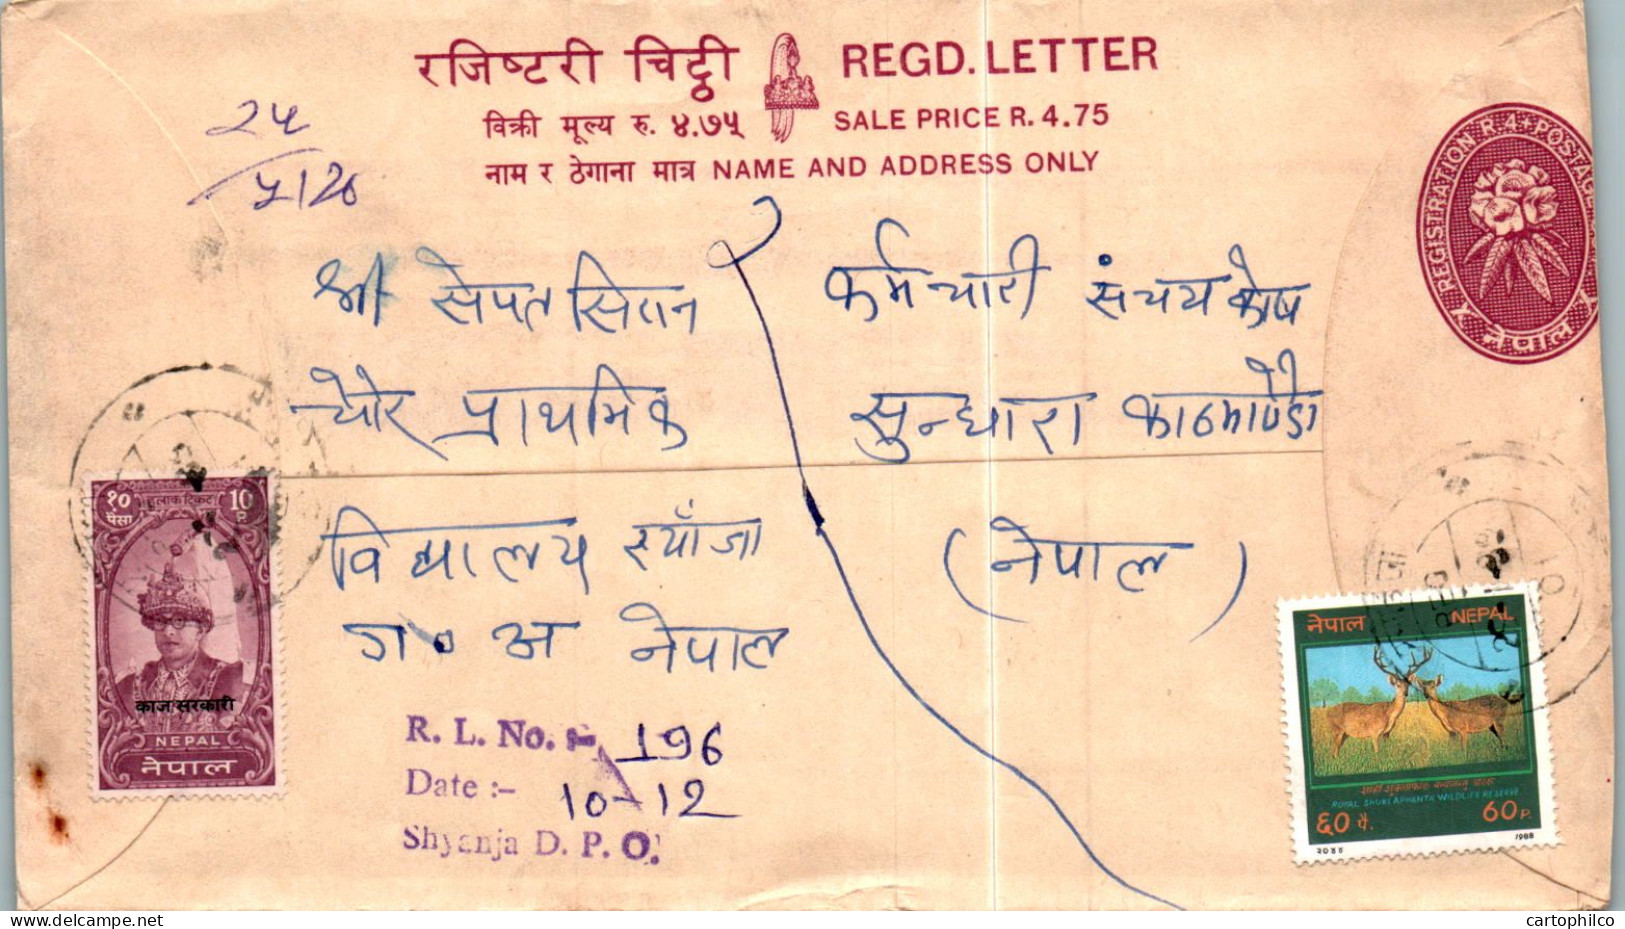 रजिष्टरी चिट्ठी REGD. LETTER
विक्री मूल्य रु. ४.७५ SALE PRICE R. 4.75
नाम र ठेगाना मात्र NAME AND ADDRESS ONLY
REGISTRATION R.4 POSTAGE
नेपाल
२५
श्री
कर्मचारी संचय कोष
प्राथमिक
सुन्धारा काठमाण्डौ
विद्यालय स्याँजा
(नेपाल)
ग० अ नेपाल
१० पैसा हुलाक टिकट 10 P.
काज सरकारी
NEPAL
नेपाल
R. L. No. :- 196
Date :- 10-12
Shyanja D. P. O.
नेपाल NEPAL
ROYAL SHUKLAPHANTA WILDLIFE RESERVE
६० पै. 60 P.
२०४५ 1988
cartophilco